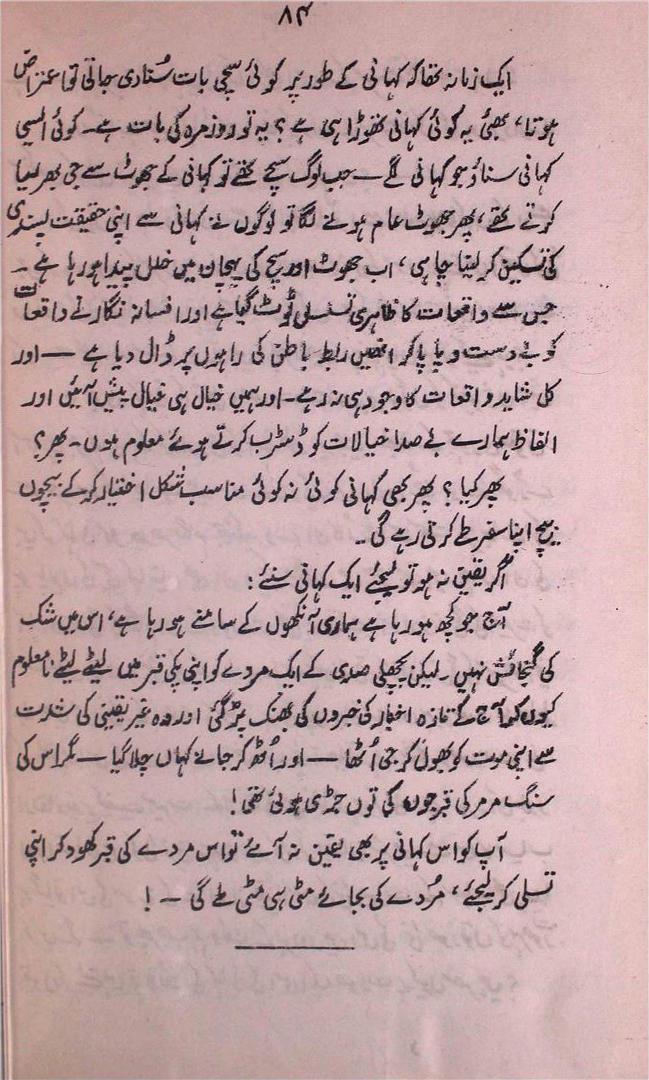 ۸۴
ایک زمانہ تھا کہ کہانی کے طور پر کوئی سچی بات سُنا دی جاتی تو اعتراض
ہوتا، بھئی یہ کوئی کہانی تھوڑا ہی ہے؟ یہ تو روزمرہ کی بات ہے۔ کوئی ایسی
کہانی سناؤ جو کہانی لگے — جب لوگ سچے تھے تو کہانی کے جھوٹ سے جی بھر لیا
کرتے تھے، پھر جھوٹ عام ہونے لگا تو لوگوں نے کہانی سے اپنی حقیقت پسندی
کی تسکین کر لینا چاہی، اب جھوٹ اور سچ کی پہچان میں خلل پیدا ہو رہا ہے —
جس سے واقعات کا ظاہری تسلسل ٹوٹ گیا ہے اور افسانہ نگار نے واقعات
کو بے دست و پا پا کر انھیں رابطِ باطن کی راہوں پر ڈال دیا ہے — اور
کل شاید واقعات کا وجود ہی نہ رہے۔ اور ہمیں خیال ہی خیال پیش آئیں اور
الفاظ ہمارے بے صدا خیالات کو ڈسٹرب کرتے ہوئے معلوم ہوں۔ پھر؟
پھر کیا؟ پھر بھی کہانی کوئی نہ کوئی مناسب شکل اختیار کر کے بیچوں
بیچ اپنا سفر طے کرتی رہے گی۔
اگر یقین نہ ہو تو لیجئے ایک کہانی سنئے:
آج جو کچھ ہو رہا ہے ہماری آنکھوں کے سامنے ہو رہا ہے، اس میں شک
کی گنجائش نہیں۔ لیکن پچھلی صدی کے ایک مردے کو اپنی پکی قبر میں لیٹے لیٹے نامعلوم
کیوں کر آج کے تازہ اخبار کی خبروں کی بھنک پڑ گئی اور وہ غیر یقینی کی شدت
سے اپنی موت کو بھول کر جی اُٹھا — اور اُٹھ کر جانے کہاں چلا گیا — مگر اس کی
سنگ مرمر کی قبر جوں کی توں جڑی ہوئی تھی!
آپ کو اس کہانی پر بھی یقین نہ آئے تو اس مردے کی قبر کھود کر اپنی
تسلی کر لیجئے، مُردے کی بجائے مٹی ہی مٹی ملے گی —!